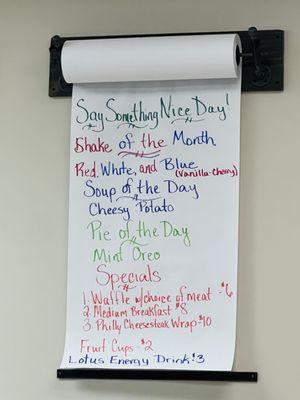 Say Something Nice Day!
Shake of the Month
Red, White, and Blue
(Vanilla-Cherry)
Soup of the Day
Cheesy Potato
Pie of the Day
Mint Oreo
Specials
1. Waffle w/choice of meat - $6
2. Medium Breakfast $8
3. Philly Cheesesteak Wrap-$10
Fruit Cups - $2
Lotus Energy Drink-$3